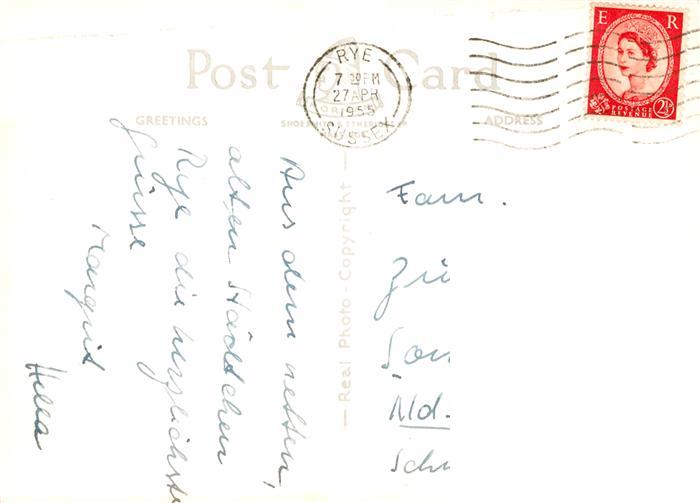 Post Card
GREETINGS
ADDRESS
RYE
7 30 PM
27 APR
1955
SUSSEX
E R
POSTAGE
REVENUE
2½D
— Real Photo - Copyright —
Aus dem netten,
alten Städtchen
Rye die herzlichste
Grüsse
Margrit
Hella
Fam.
Zü